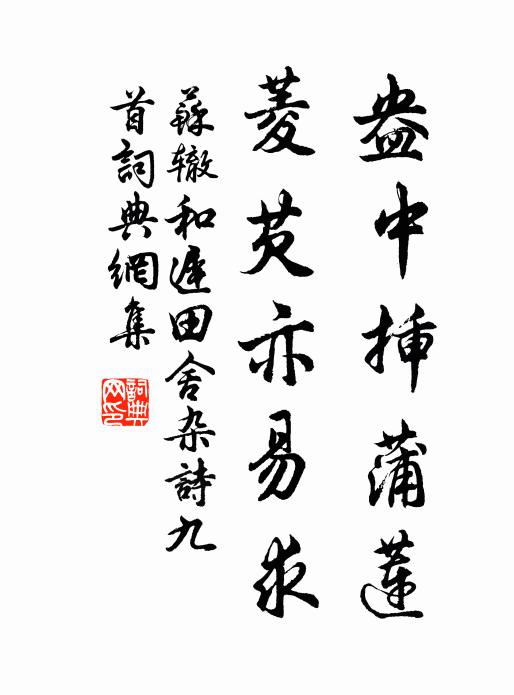 盎中插蒲蓮
菱芡亦易求
蘇辙和遲田舍杂詩九
首詞典網集
詞典
网印